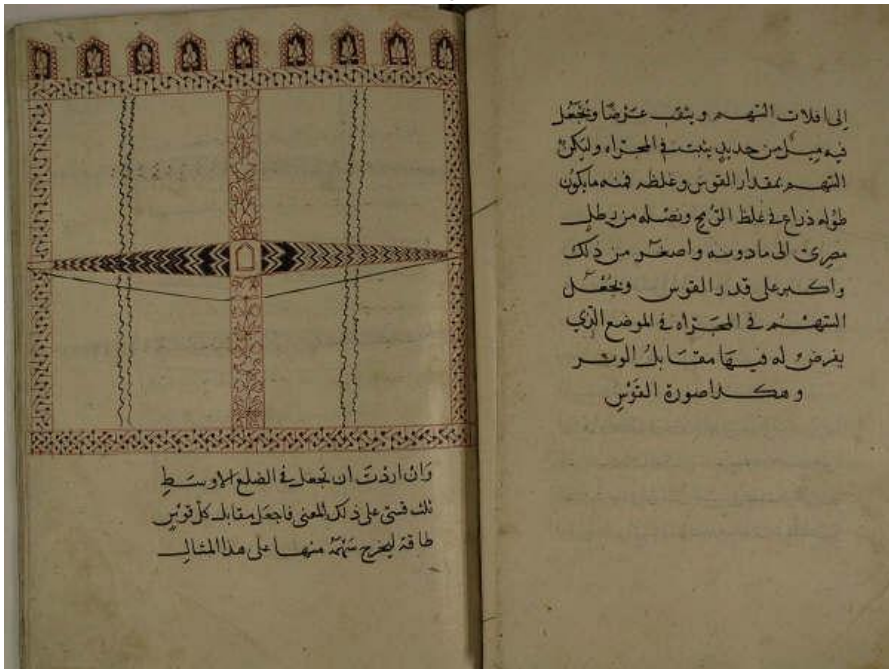 إلى افلات السهم ويثقب عرضا ويجعل
فيه ميل من حديد يثبت في المجراه وليكن
السهم بمقدار القوس وغلظه فمنه مايكون
طوله ذراع في غلظ الرمح ونصله من رطل
مصري الى مادونه واصغر من ذلك
واكبر على قدر القوس ويجعل
السهم في المجراه في الموضع الذي
يفرض له فيها مقابل الوتر
وهكذا صورة القوس
وان اردت ان تجعل في الضلع الاوسط
ثلث قسي على ذلك المعنى فاجعل مقابل كل قوس
طاقة ليخرج سهمه منها على هذا المثال